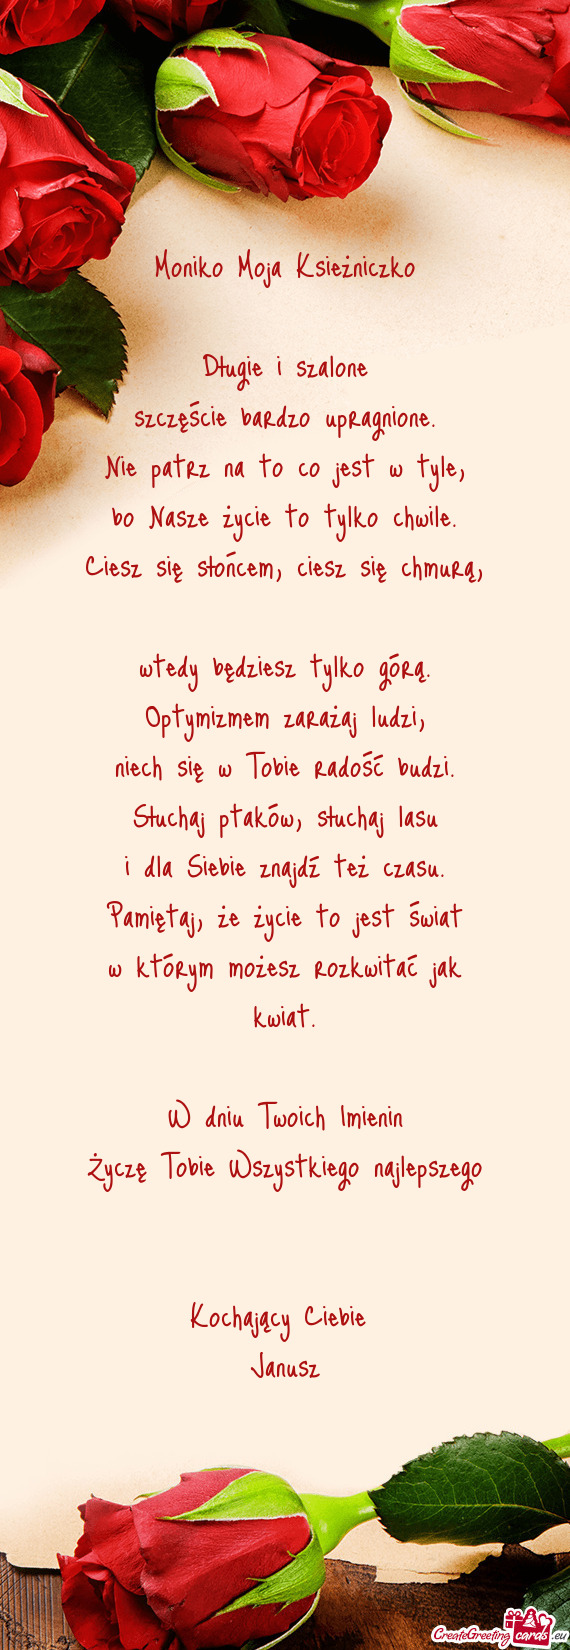 Moniko Moja Ksieżniczko
Długie i szalone
szczęście bardzo upragnione.
Nie patrz na to co jest w tyle,
bo Nasze życie to tylko chwile.
Ciesz się słońcem, ciesz się chmurą,
wtedy będziesz tylko górą.
Optymizmem zarażaj ludzi,
niech się w Tobie radość budzi.
Słuchaj ptaków, słuchaj lasu
i dla Siebie znajdź też czasu.
Pamiętaj, że życie to jest świat
w którym możesz rozkwitać jak
kwiat.
W dniu Twoich Imienin
Życzę Tobie Wszystkiego najlepszego
Kochający Ciebie
Janusz
CreateGreetingcards.eu